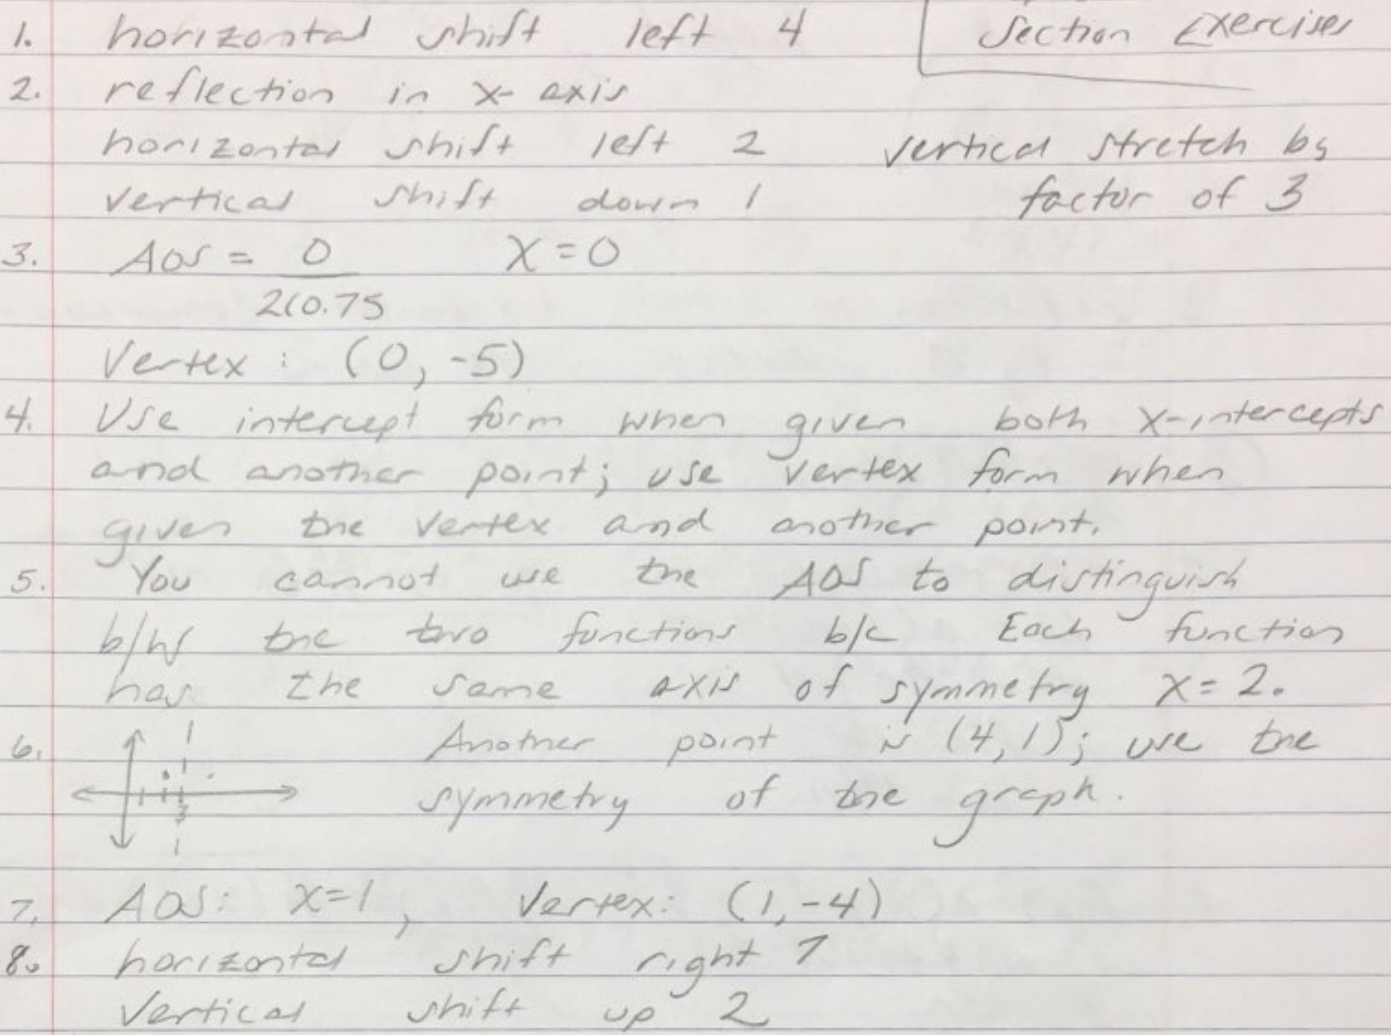 Section Exercises
1. horizontal shift left 4
2. reflection in x-axis
horizontal shift left 2 vertical stretch by
vertical shift down 1 factor of 3
3. AOS = 0 X=0
2(0.75
Vertex: (0, -5)
4. Use intercept form when given both x-intercepts
and another point; use vertex form when
given the vertex and another point.
5. You cannot use the AOS to distinguish
b/w the two functions b/c Each function
has the same axis of symmetry x=2.
6. Another point is (4,1); use the
3 symmetry of the graph.
7. AOS: x=1, Vertex: (1,-4)
8. horizontal shift right 7
Vertical shift up 2